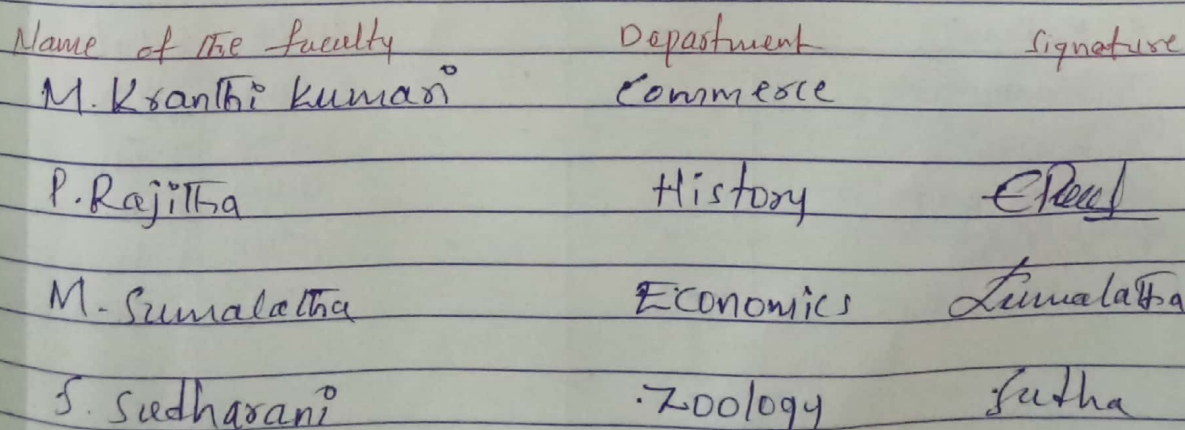 Name of the faculty Department Signature
M. Kranthi Kumari Commerce
P. Rajitha History
M. Sumalatha Economics Sumalatha
S. Sudharani Zoology Sutha